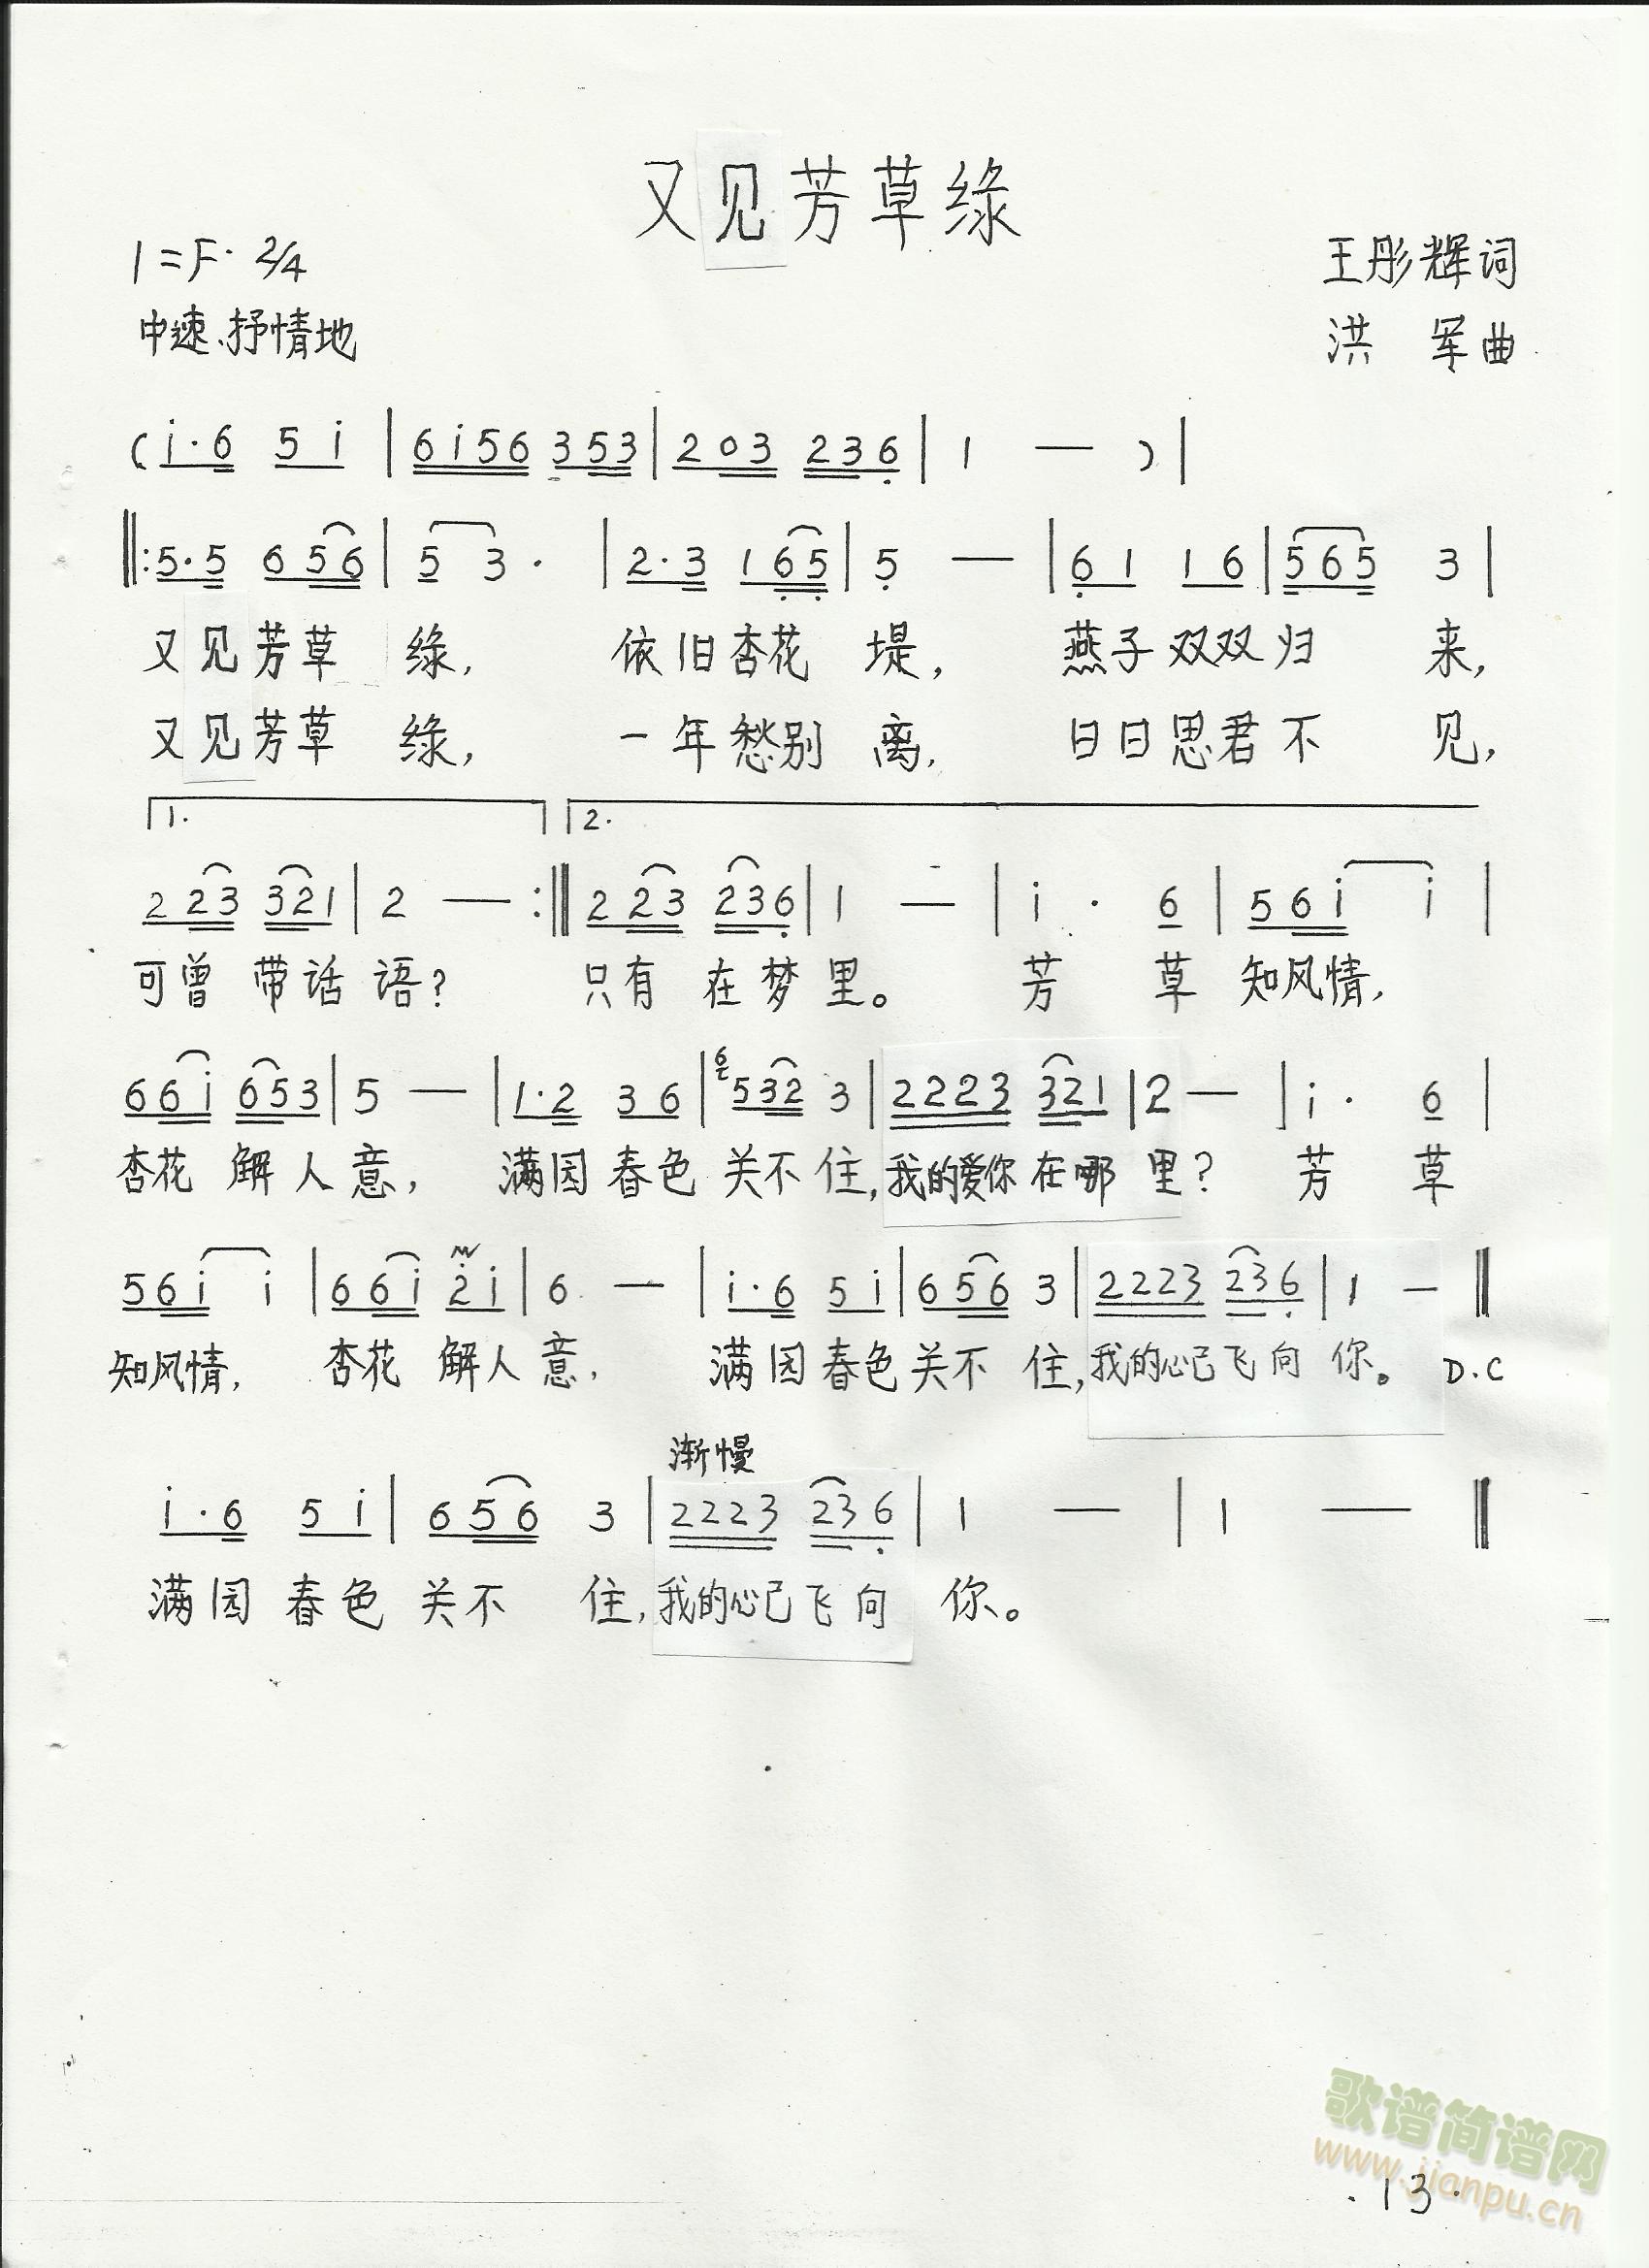 又见芳草绿
1=F· 2/4
王彤辉词
中速、抒情地
洪 军曲
(i·6 5 i | 6i56 353 | 203 236 | 1 — ) |
‖:5·5 656 | 5 3· | 2·3 165 | 5 — | 61 16 | 565 3 |
又见芳草 绿, 依旧杏花 堤, 燕子双双归 来,
又见芳草 绿, 一年愁别 离, 日日思君不 见,
1. 2.
2 23 321 | 2 — :‖ 2 23 236 | 1 — | i · 6 | 56i i |
可曾 带话语? 只有 在梦里。 芳 草 知风情,
66i 653 | 5 — | 1·2 36 | 6 532 3 | 2223 321 | 2 — | i· 6 |
杏花 解人意, 满园春色 关不住, 我的爱你在哪里? 芳 草
56i i | 66i 2i | 6 — | i·6 5i | 656 3 | 2223 236 | 1 — ‖
知风情, 杏花 解人意, 满园春色关不 住, 我的心已飞向 你。 D.C
渐慢
i·6 5i | 656 3 | 2223 236 | 1 — | 1 — ‖
满园 春色 关不 住, 我的心已飞向 你。
歌谱简谱网
www.jianpu.cn
·13·